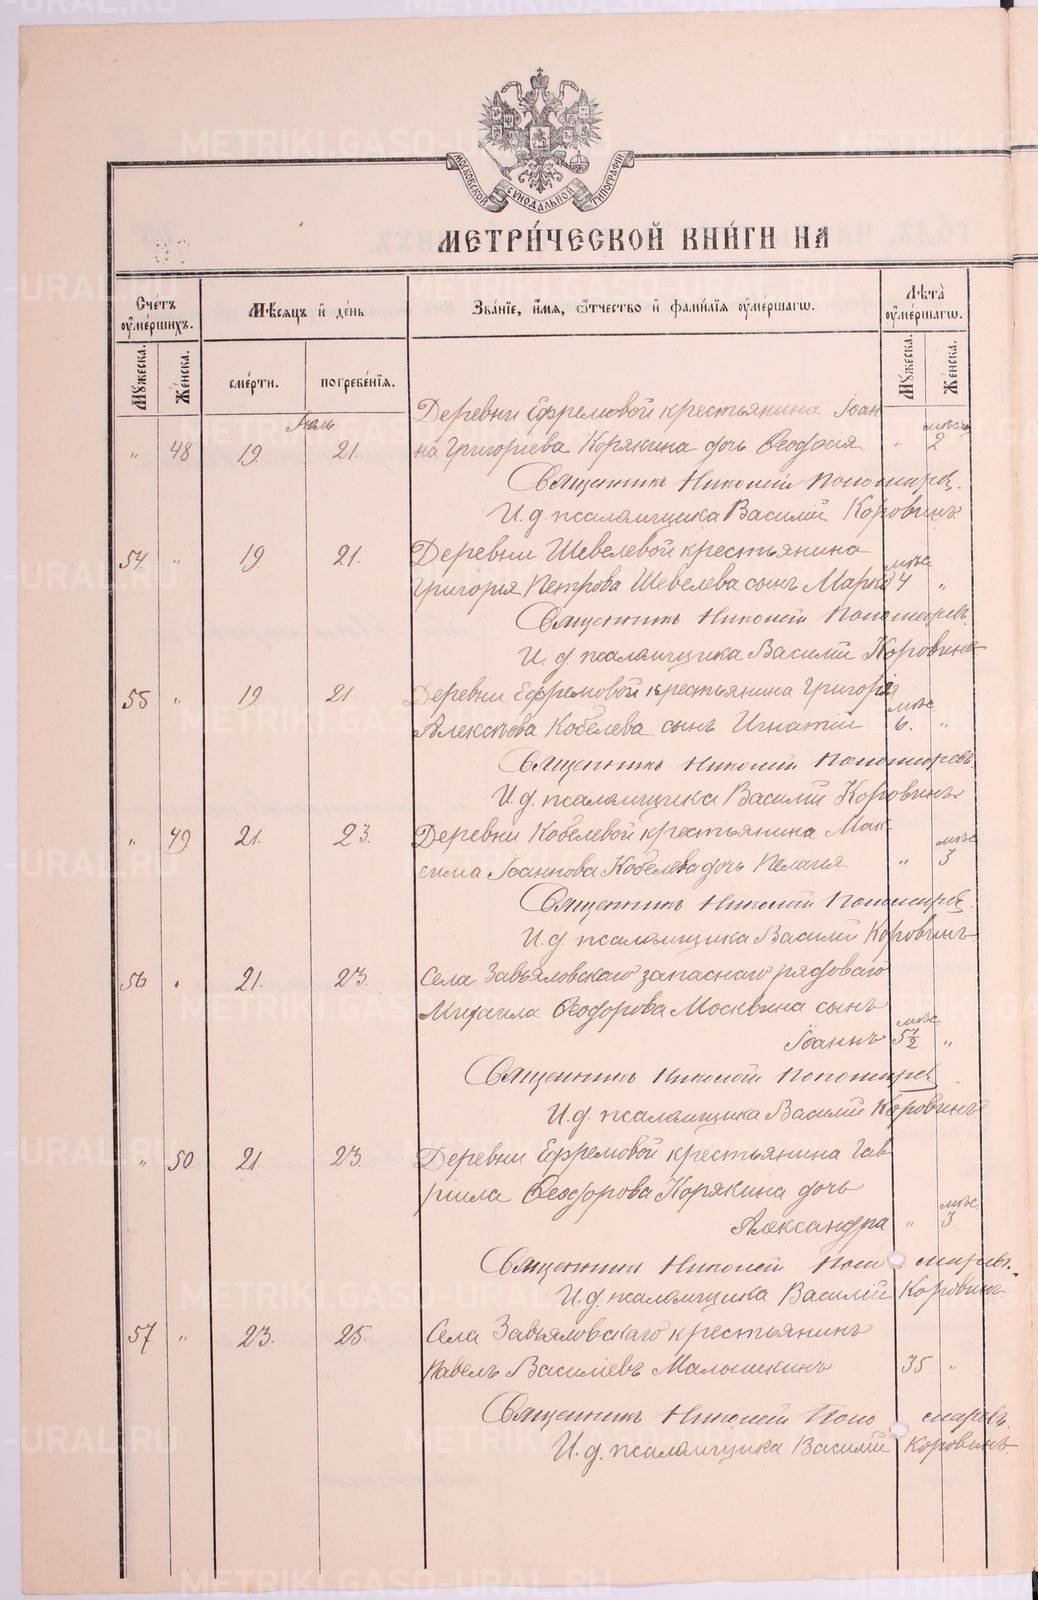 МОСКОВСКОЙ СѴНОДАЛЬНОЙ ТИПОГРАФІИ
МЕТРИ́ЧЕСКОЙ КНИ́ГИ НА
Сче́тъ оумершихъ.
Мѣсяцъ и день
Зва́нїе, и́мя, ѿчество и фами́лїя оумершагѡ.
Лѣта оумершагѡ.
Мꙋжеска.
Же́нска.
сме́рти.
погребе́нїя.
Мꙋжеска.
Же́нска.
Іюль
Деревни Ефремовой крестьянина Іоан
мѣсяц
„ 48 19 21. на Григоріева Корякина дочь Ѳеодосія „ 2
Священникъ Николай Пономарев.
И. д. псаломщика Василій Коровинъ
54 „ 19 21. Деревни Шевелевой крестьянина
мѣс
Григорія Петрова Шевелева сынъ Марко 4 „
Священникъ Николай Пономаревъ
И. д. псаломщика Василій Коровинъ
55 „ 19 21 Деревни Ефремовой крестьянина Григорія
мѣс
Алексѣева Кобелева сынъ Игнатій 6. „
Священникъ Николай Пономаревъ.
И. д. псаломщика Василій Коровинъ
„ 49 21. 23. Деревни Кобелевой крестьянина Мак-
мѣс
сима Іоаннова Кобелева дочь Пелагія „ 3
Священникъ Николай Пономарев.
И. д. псаломщика Василій Коровинъ
56 „ 21. 23. Села Завьяловскаго запаснаго рядоваго
Михаила Ѳеодорова Москвина сынъ
мѣс
Іоаннъ 5 1/2 „
Священникъ Николай Пономарев
И. д. псаломщика Василій Коровинъ
„ 50 21 23. Деревни Ефремовой крестьянина Гав
ріила Ѳеодорова Корякина дочь
мѣс.
Александра „ 3.
Священникъ Николай Пономаревъ.
И. д. псаломщика Василій Коровинъ
57 „ 23. 25. Села Завьяловскаго крестьянинъ
Павелъ Василіевъ Малышкинъ 35 „
Священникъ Николай Пономаревъ.
И. д. псаломщика Василій Коровинъ
METRIKI.GASO-URAL.RU